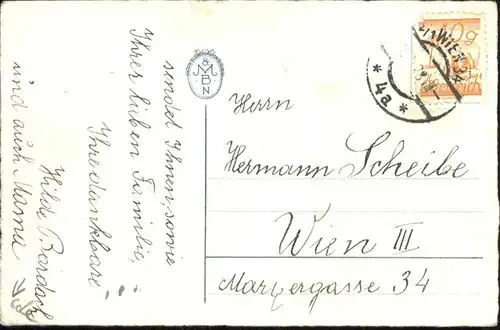 sendet Ihnen, sowie
Ihrer lieben Familie,
Ihre dankbare
Hilde
und auch Mama
M & M
B N
Herrn
Hermann Scheibe
Wien III
Marxergasse 34
WIEN
* 4a *